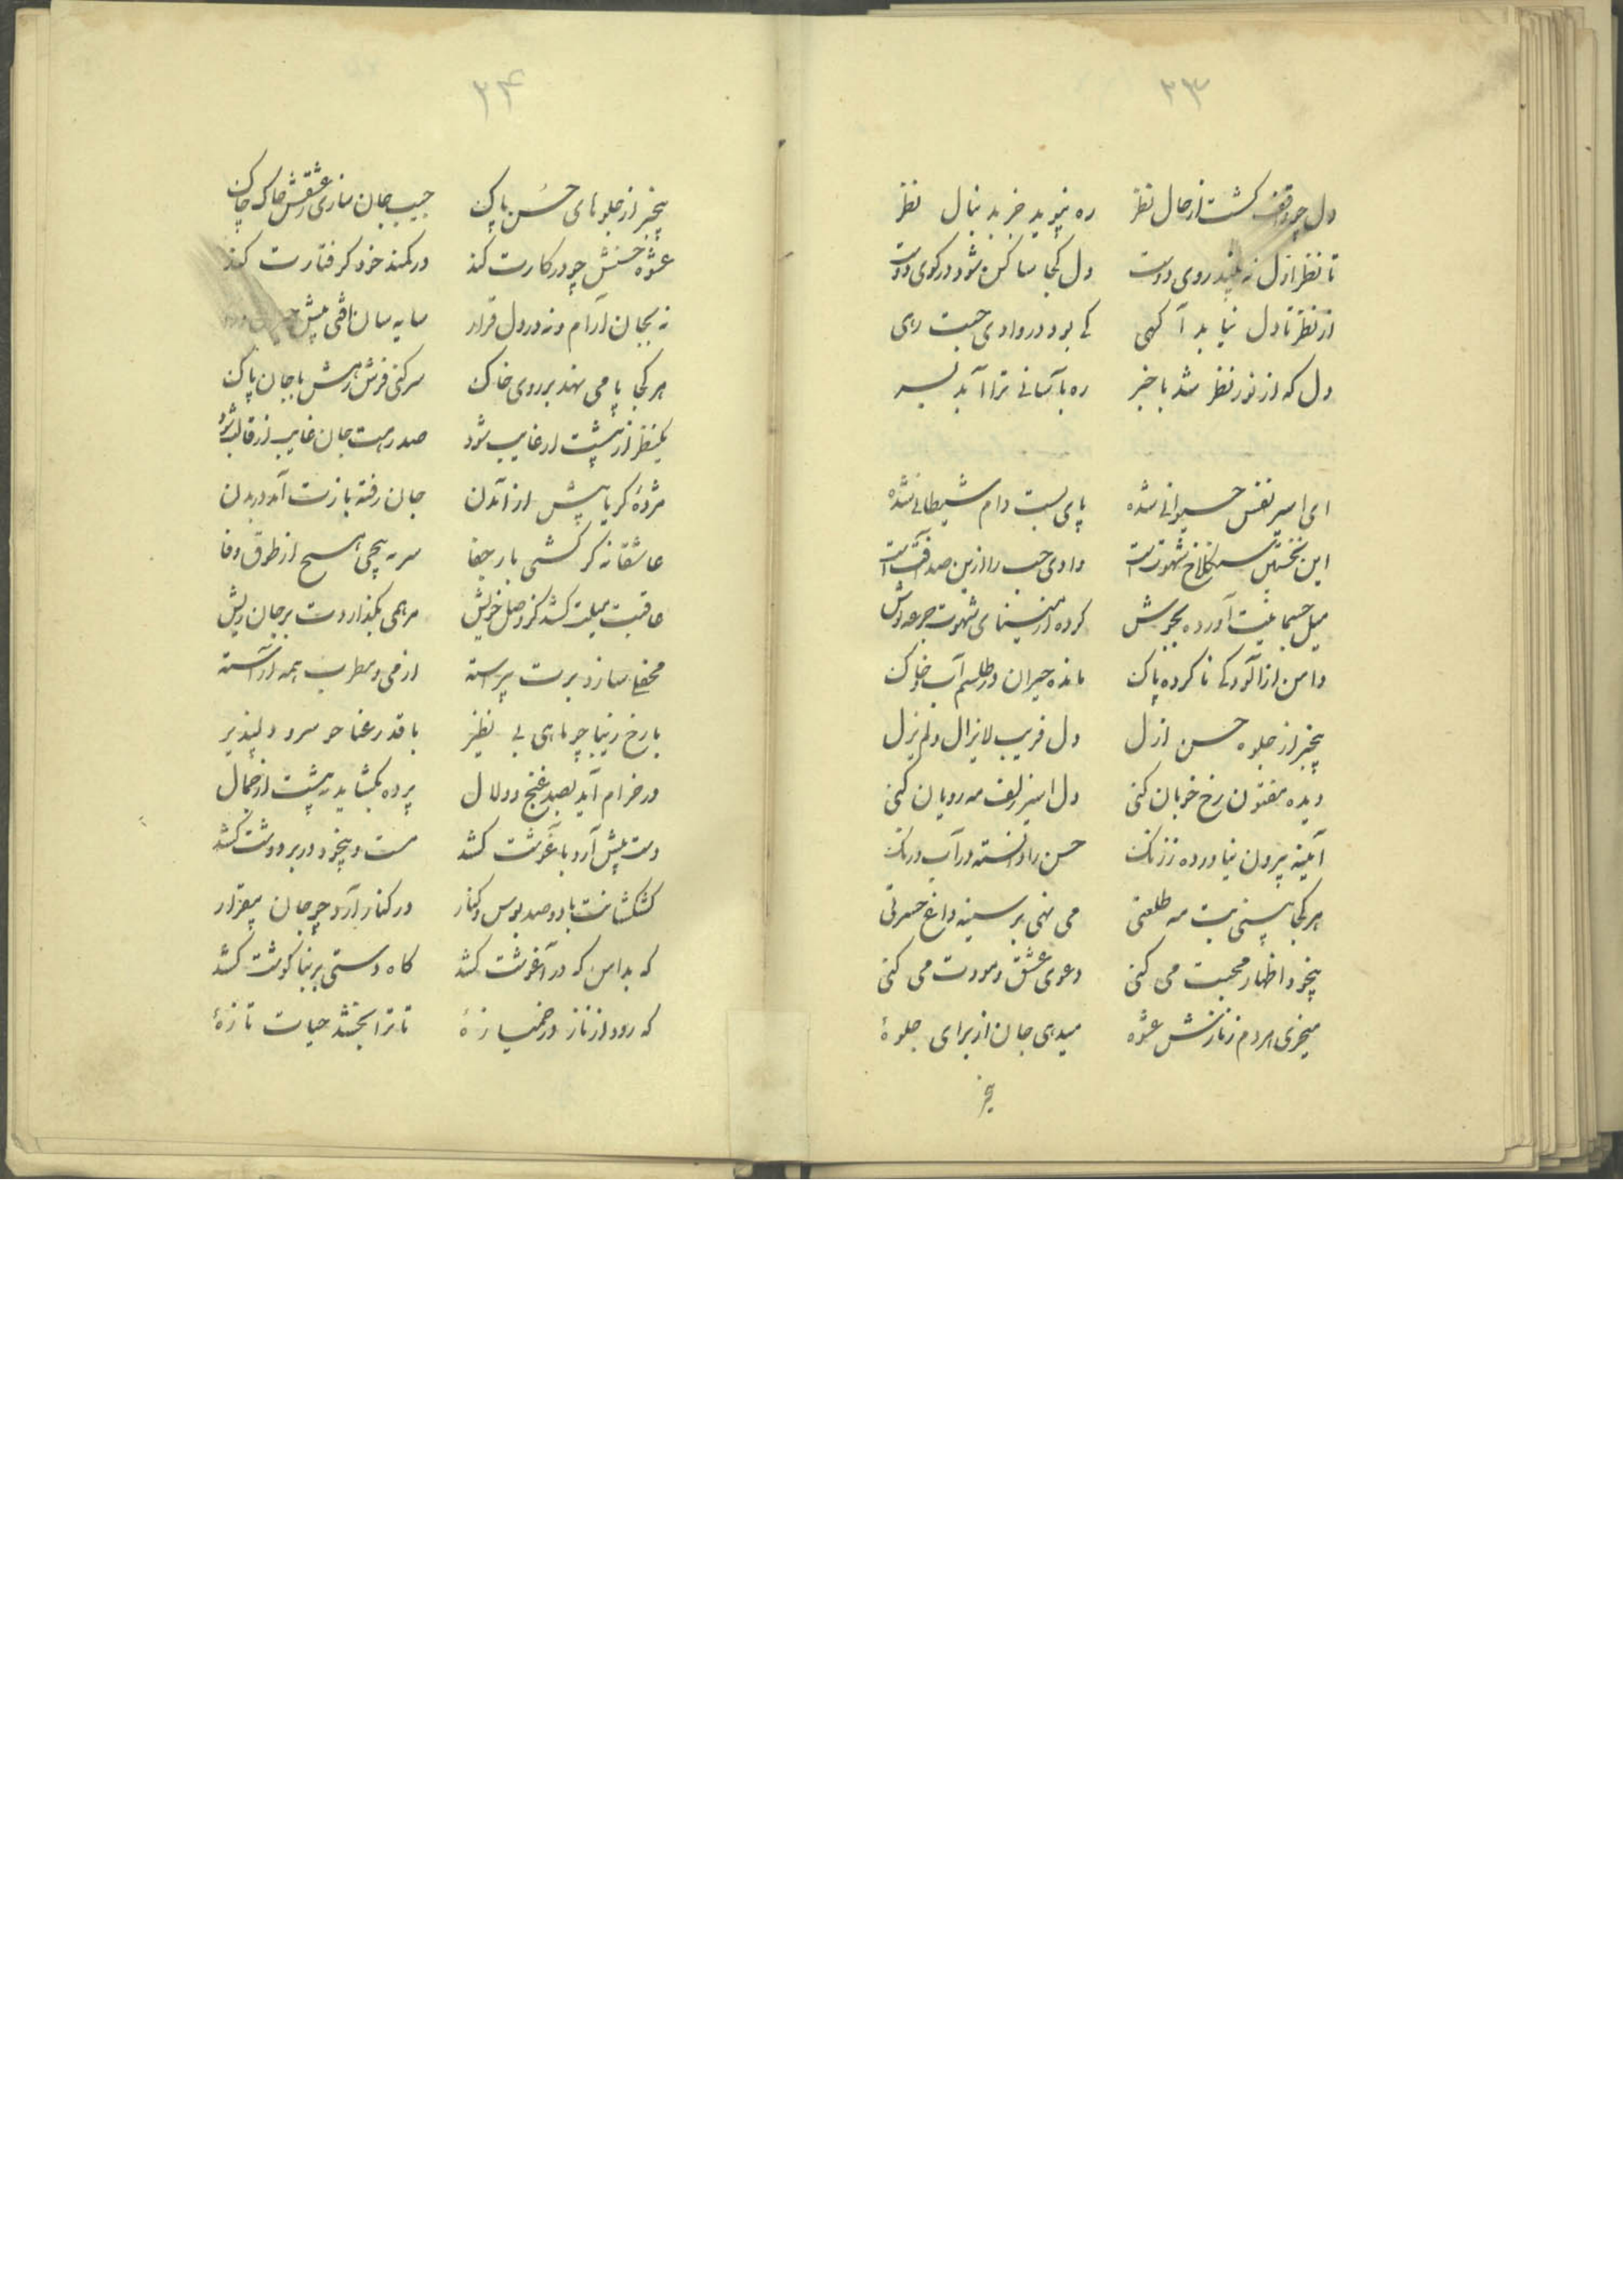 ۲۳
دل چو واقف گشت از حال نظر ره نپوید جز بدنبال نظر
تا نظر از دل نه بیند روی دوست دل کجا ساکن شود در کوی دوست
از نظر تا دل نیابد آگهی کی بود در وادی حبت رهی
دل که از نور نظر شد با خبر ره بآسانی ترا آید بسر
ای اسیر نفس حیوانی شده پای بست دام شیطانی شده
این نخستین سنگلاخ شهوت است وادی حب را ازین صد آفت است
میل جسمانیت آورده بجوش کرده از مینای شهوت جرعه نوش
دامن از آلودگی ناکرده پاک مانده حیران در طلسم آب و خاک
بیخبر از جلوه حسن ازل دل فریب لایزال و لم یزل
دیده مفتون رخ خوبان کنی دل اسیر زلف مه رویان کنی
آینه بیرون نیاورده ز زنگ حسن را دانسته در آب و رنگ
هر کجا بینی بت مه طلعتی می نهی بر سینه داغ حسرتی
بیخود اظهار محبت می کنی دعوی عشق و مودت می کنی
میخری هر دم ز نازش عشوهٔ میدهی جان از برای جلوهٔ
بیخبر
۲۴
بیخبر از جلوهای حسن پاک جیب جان سازی ز عشقش چاک چاک
عشوه حسنش چو در کارت کند در کمند خود گرفتارت کند
نه بجان آرام و نه در دل قرار سایه سان افتی پیش
هر کجا پا می نهد بر روی خاک سر کنی فرش رهش با جان پاک
یکنظر از پیشت ار غایب شود صد رهت جان غایب از قالب شود
مژدهٔ گر یابیش از آمدن جان رفته بازت آید در بدن
عاشقانه گر کشی بار جفا سر نه پیچی هیچ از طوق وفا
عاقبت میلت کشد کز وصل خویش مرهمی بگذاردت بر جان ریش
محفلی سازد برت پیراسته از می و مطرب همه آراسته
با رخ زیبا چو ماهی بی نظیر با قد رعنا چو سرو دلپذیر
در خرام آید بصد غنج و دلال پرده بگشاید به پیشت از جمال
دست پیش آرد بآغوشت کشد مست و بیخود در بر و دوشت کشد
کشکشانت با دو صد بوس و کنار در کنار آرد چو جان بیقرار
که بدامن که در آغوشت کشد گاه دستی بر بناگوشت کشد
که رود از ناز در خمیازهٔ تا ترا بخشد حیات تازهٔ